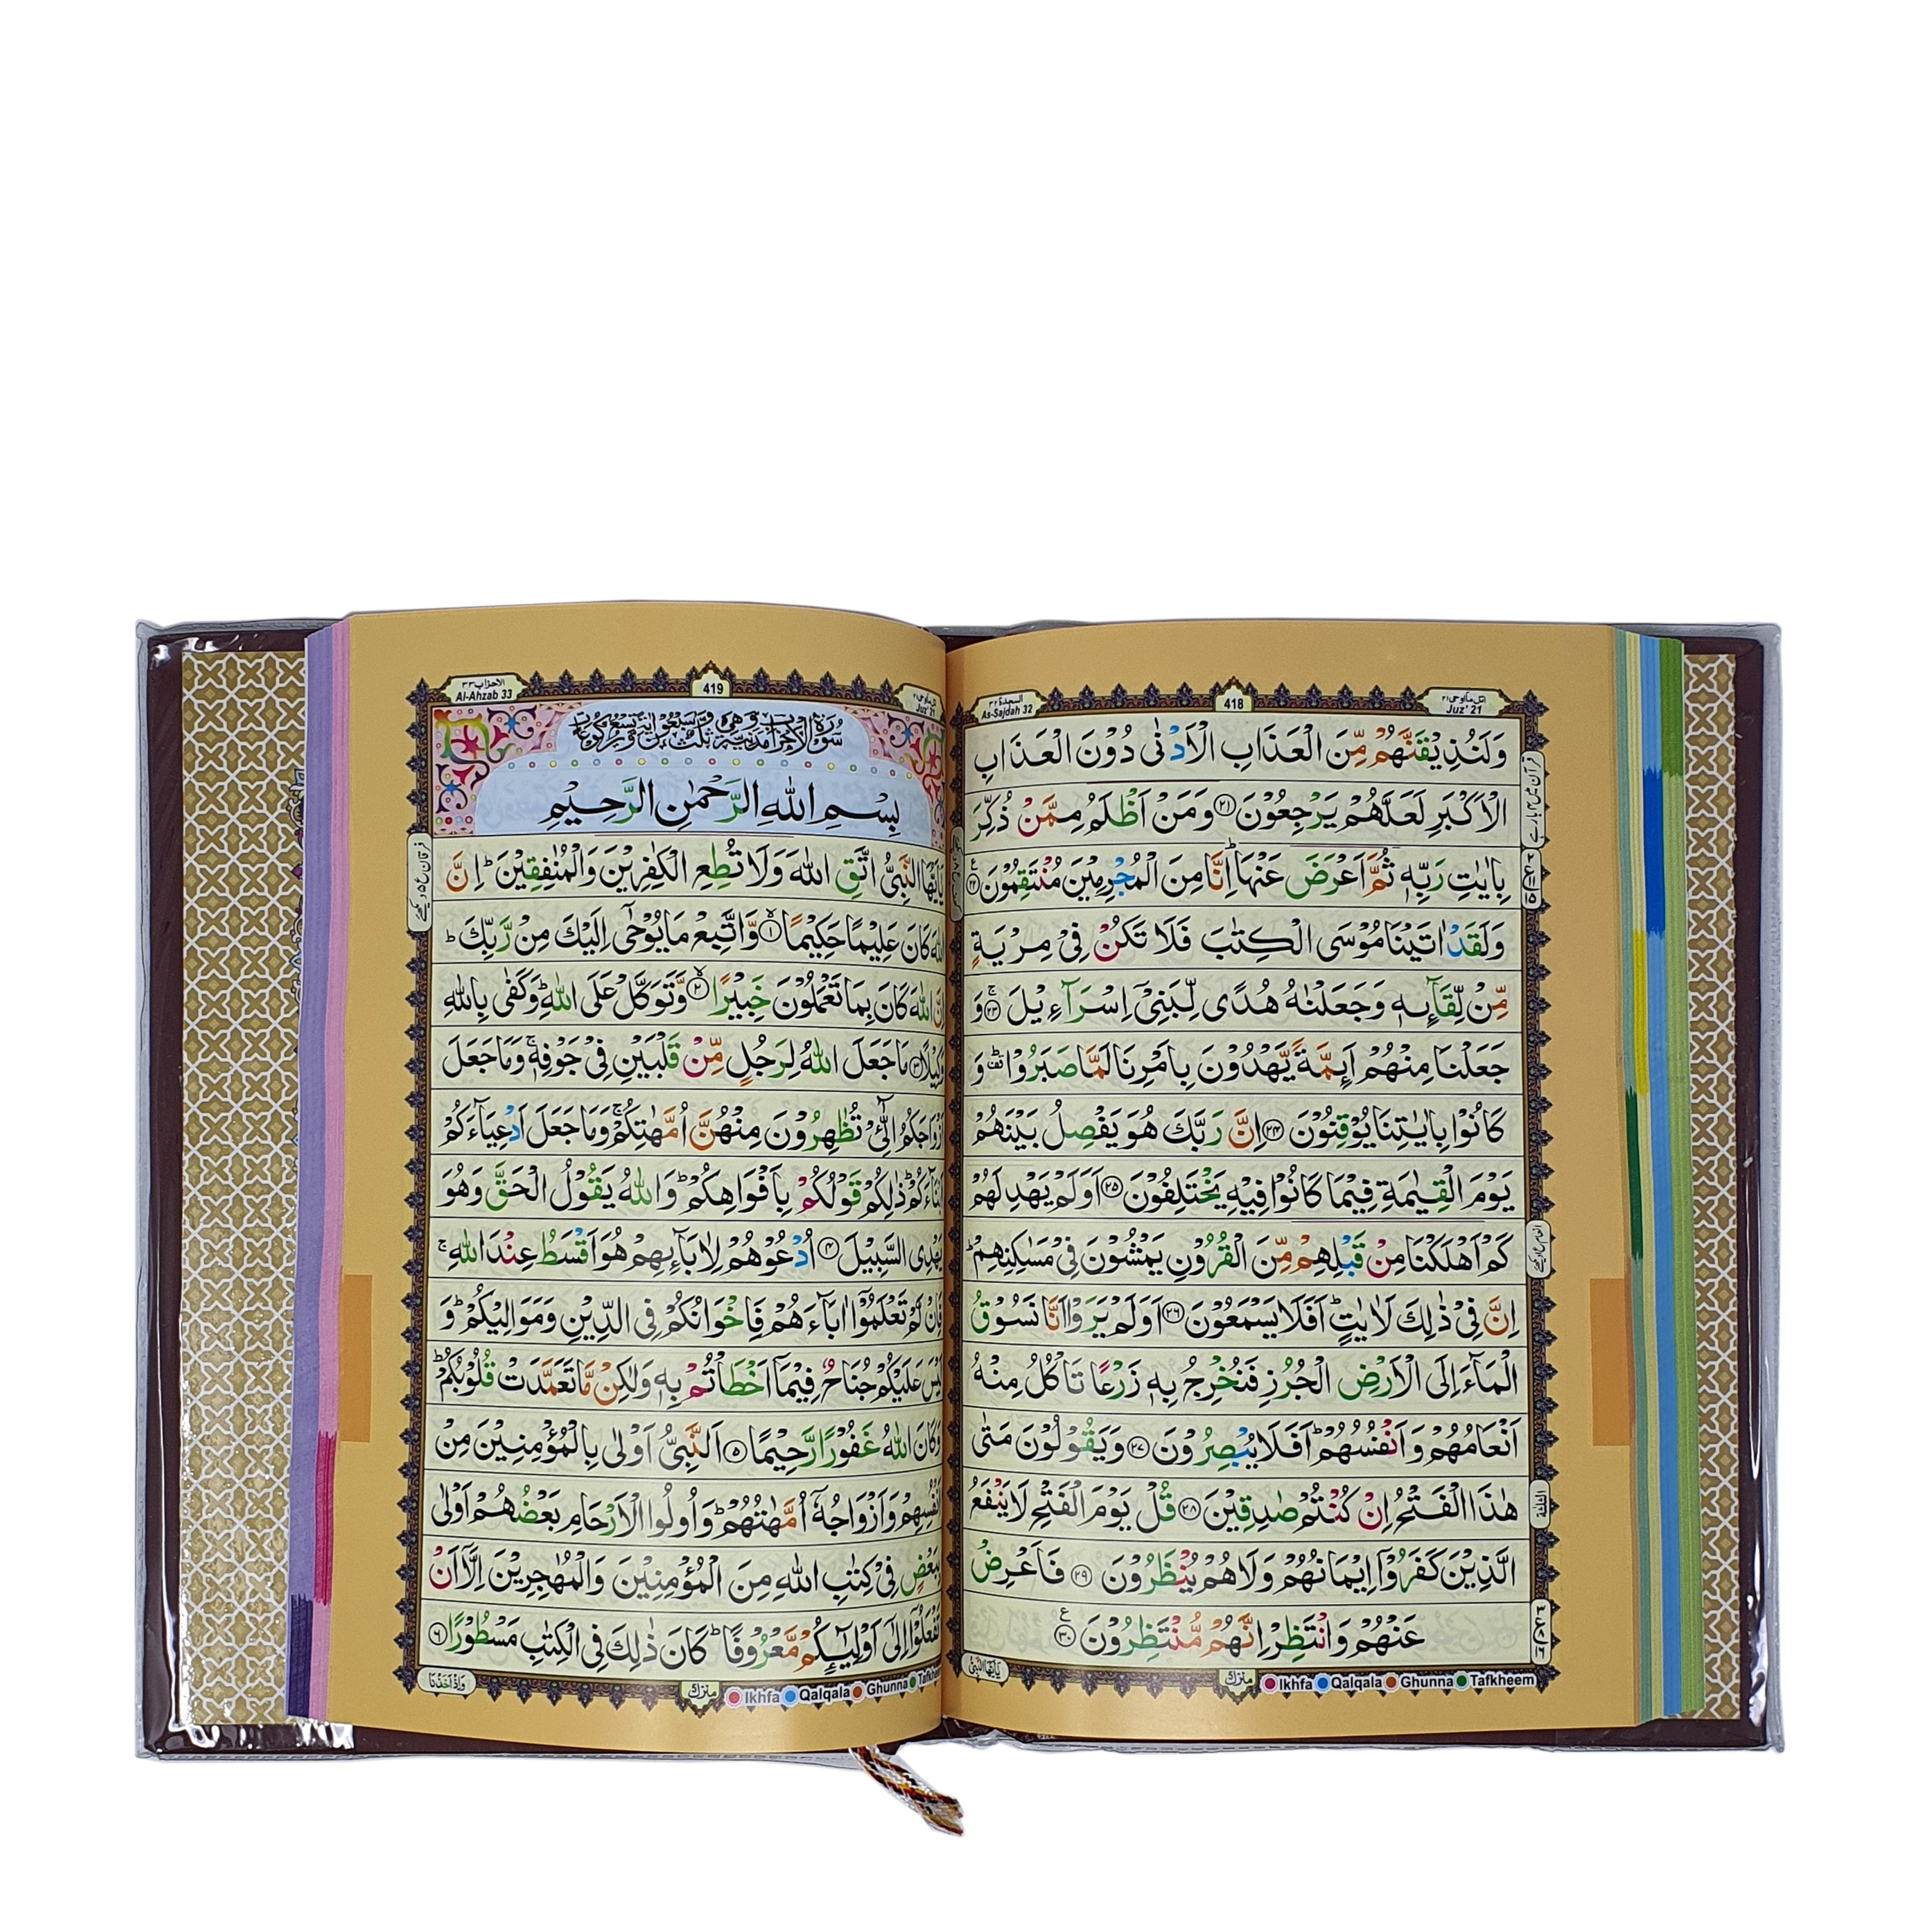 السجدة ٣٢
As-Sajdah 32
418
اتل ماأوحی ٢١
Juz' 21
وَلَنُذِيْقَنَّهُمْ مِّنَ الْعَذَابِ الْاَدْنٰى دُوْنَ الْعَذَابِ
الْاَكْبَرِ لَعَلَّهُمْ يَرْجِعُوْنَ ٢١ وَمَنْ اَظْلَمُ مِمَّنْ ذُكِّرَ
بِاٰيٰتِ رَبِّهٖ ثُمَّ اَعْرَضَ عَنْهَا ؕ اِنَّا مِنَ الْمُجْرِمِيْنَ مُنْتَقِمُوْنَ ٢٢
وَلَقَدْ اٰتَيْنَا مُوْسَى الْكِتٰبَ فَلَا تَكُنْ فِيْ مِرْيَةٍ
مِّنْ لِّقَآئِهٖ وَجَعَلْنٰهُ هُدًى لِّبَنِيْٓ اِسْرَآءِيْلَ ٢٣ وَ
جَعَلْنَا مِنْهُمْ اَئِمَّةً يَّهْدُوْنَ بِاَمْرِنَا لَمَّا صَبَرُوْا وَ
كَانُوْا بِاٰيٰتِنَا يُوْقِنُوْنَ ٢٤ اِنَّ رَبَّكَ هُوَ يَفْصِلُ بَيْنَهُمْ
يَوْمَ الْقِيٰمَةِ فِيْمَا كَانُوْا فِيْهِ يَخْتَلِفُوْنَ ٢٥ اَوَلَمْ يَهْدِ لَهُمْ
كَمْ اَهْلَكْنَا مِنْ قَبْلِهِمْ مِّنَ الْقُرُوْنِ يَمْشُوْنَ فِيْ مَسٰكِنِهِمْ ؕ
اِنَّ فِيْ ذٰلِكَ لَاٰيٰتٍ ؕ اَفَلَا يَسْمَعُوْنَ ٢٦ اَوَلَمْ يَرَوْا اَنَّا نَسُوْقُ
الْمَآءَ اِلَى الْاَرْضِ الْجُرُزِ فَنُخْرِجُ بِهٖ زَرْعًا تَاْكُلُ مِنْهُ
اَنْعَامُهُمْ وَاَنْفُسُهُمْ ؕ اَفَلَا يُبْصِرُوْنَ ٢٧ وَيَقُوْلُوْنَ مَتٰى
هٰذَا الْفَتْحُ اِنْ كُنْتُمْ صٰدِقِيْنَ ٢٨ قُلْ يَوْمَ الْفَتْحِ لَا يَنْفَعُ
الَّذِيْنَ كَفَرُوْٓا اِيْمَانُهُمْ وَلَا هُمْ يُنْظَرُوْنَ ٢٩ فَاَعْرِضْ
عَنْهُمْ وَانْتَظِرْ اِنَّهُمْ مُّنْتَظِرُوْنَ ٣٠
Ikhfa Qalqala Ghunna Tafkheem
الاحزاب ٣٣
Al-Ahzab 33
419
Juz' 21
بِسْمِ اللّٰهِ الرَّحْمٰنِ الرَّحِيْمِ
يٰٓاَيُّهَا النَّبِيُّ اتَّقِ اللّٰهَ وَلَا تُطِعِ الْكٰفِرِيْنَ وَالْمُنٰفِقِيْنَ ؕ اِنَّ
اللّٰهَ كَانَ عَلِيْمًا حَكِيْمًا ١ وَّاتَّبِعْ مَا يُوْحٰٓى اِلَيْكَ مِنْ رَّبِّكَ ؕ
اِنَّ اللّٰهَ كَانَ بِمَا تَعْمَلُوْنَ خَبِيْرًا ٢ وَّتَوَكَّلْ عَلَى اللّٰهِ ؕ وَكَفٰى بِاللّٰهِ
وَكِيْلًا ٣ مَا جَعَلَ اللّٰهُ لِرَجُلٍ مِّنْ قَلْبَيْنِ فِيْ جَوْفِهٖ ۚ وَمَا جَعَلَ
اَزْوَاجَكُمُ الّٰٓـِٔيْ تُظٰهِرُوْنَ مِنْهُنَّ اُمَّهٰتِكُمْ ۚ وَمَا جَعَلَ اَدْعِيَآءَكُمْ
اَبْنَآءَكُمْ ؕ ذٰلِكُمْ قَوْلُكُمْ بِاَفْوَاهِكُمْ ؕ وَاللّٰهُ يَقُوْلُ الْحَقَّ وَهُوَ
يَهْدِى السَّبِيْلَ ٤ اُدْعُوْهُمْ لِاٰبَآئِهِمْ هُوَ اَقْسَطُ عِنْدَ اللّٰهِ ۚ
فَاِنْ لَّمْ تَعْلَمُوْٓا اٰبَآءَهُمْ فَاِخْوَانُكُمْ فِى الدِّيْنِ وَمَوَالِيْكُمْ ؕ وَ
لَيْسَ عَلَيْكُمْ جُنَاحٌ فِيْمَآ اَخْطَاْتُمْ بِهٖ وَلٰكِنْ مَّا تَعَمَّدَتْ قُلُوْبُكُمْ ؕ
وَكَانَ اللّٰهُ غَفُوْرًا رَّحِيْمًا ٥ اَلنَّبِيُّ اَوْلٰى بِالْمُؤْمِنِيْنَ مِنْ
اَنْفُسِهِمْ وَاَزْوَاجُهٗٓ اُمَّهٰتُهُمْ ؕ وَاُولُوا الْاَرْحَامِ بَعْضُهُمْ اَوْلٰى
بِبَعْضٍ فِيْ كِتٰبِ اللّٰهِ مِنَ الْمُؤْمِنِيْنَ وَالْمُهٰجِرِيْنَ اِلَّآ اَنْ
تَفْعَلُوْٓا اِلٰٓى اَوْلِيٰٓئِكُمْ مَّعْرُوْفًا ؕ كَانَ ذٰلِكَ فِى الْكِتٰبِ مَسْطُوْرًا ٦
Ikhfa Qalqala Ghunna